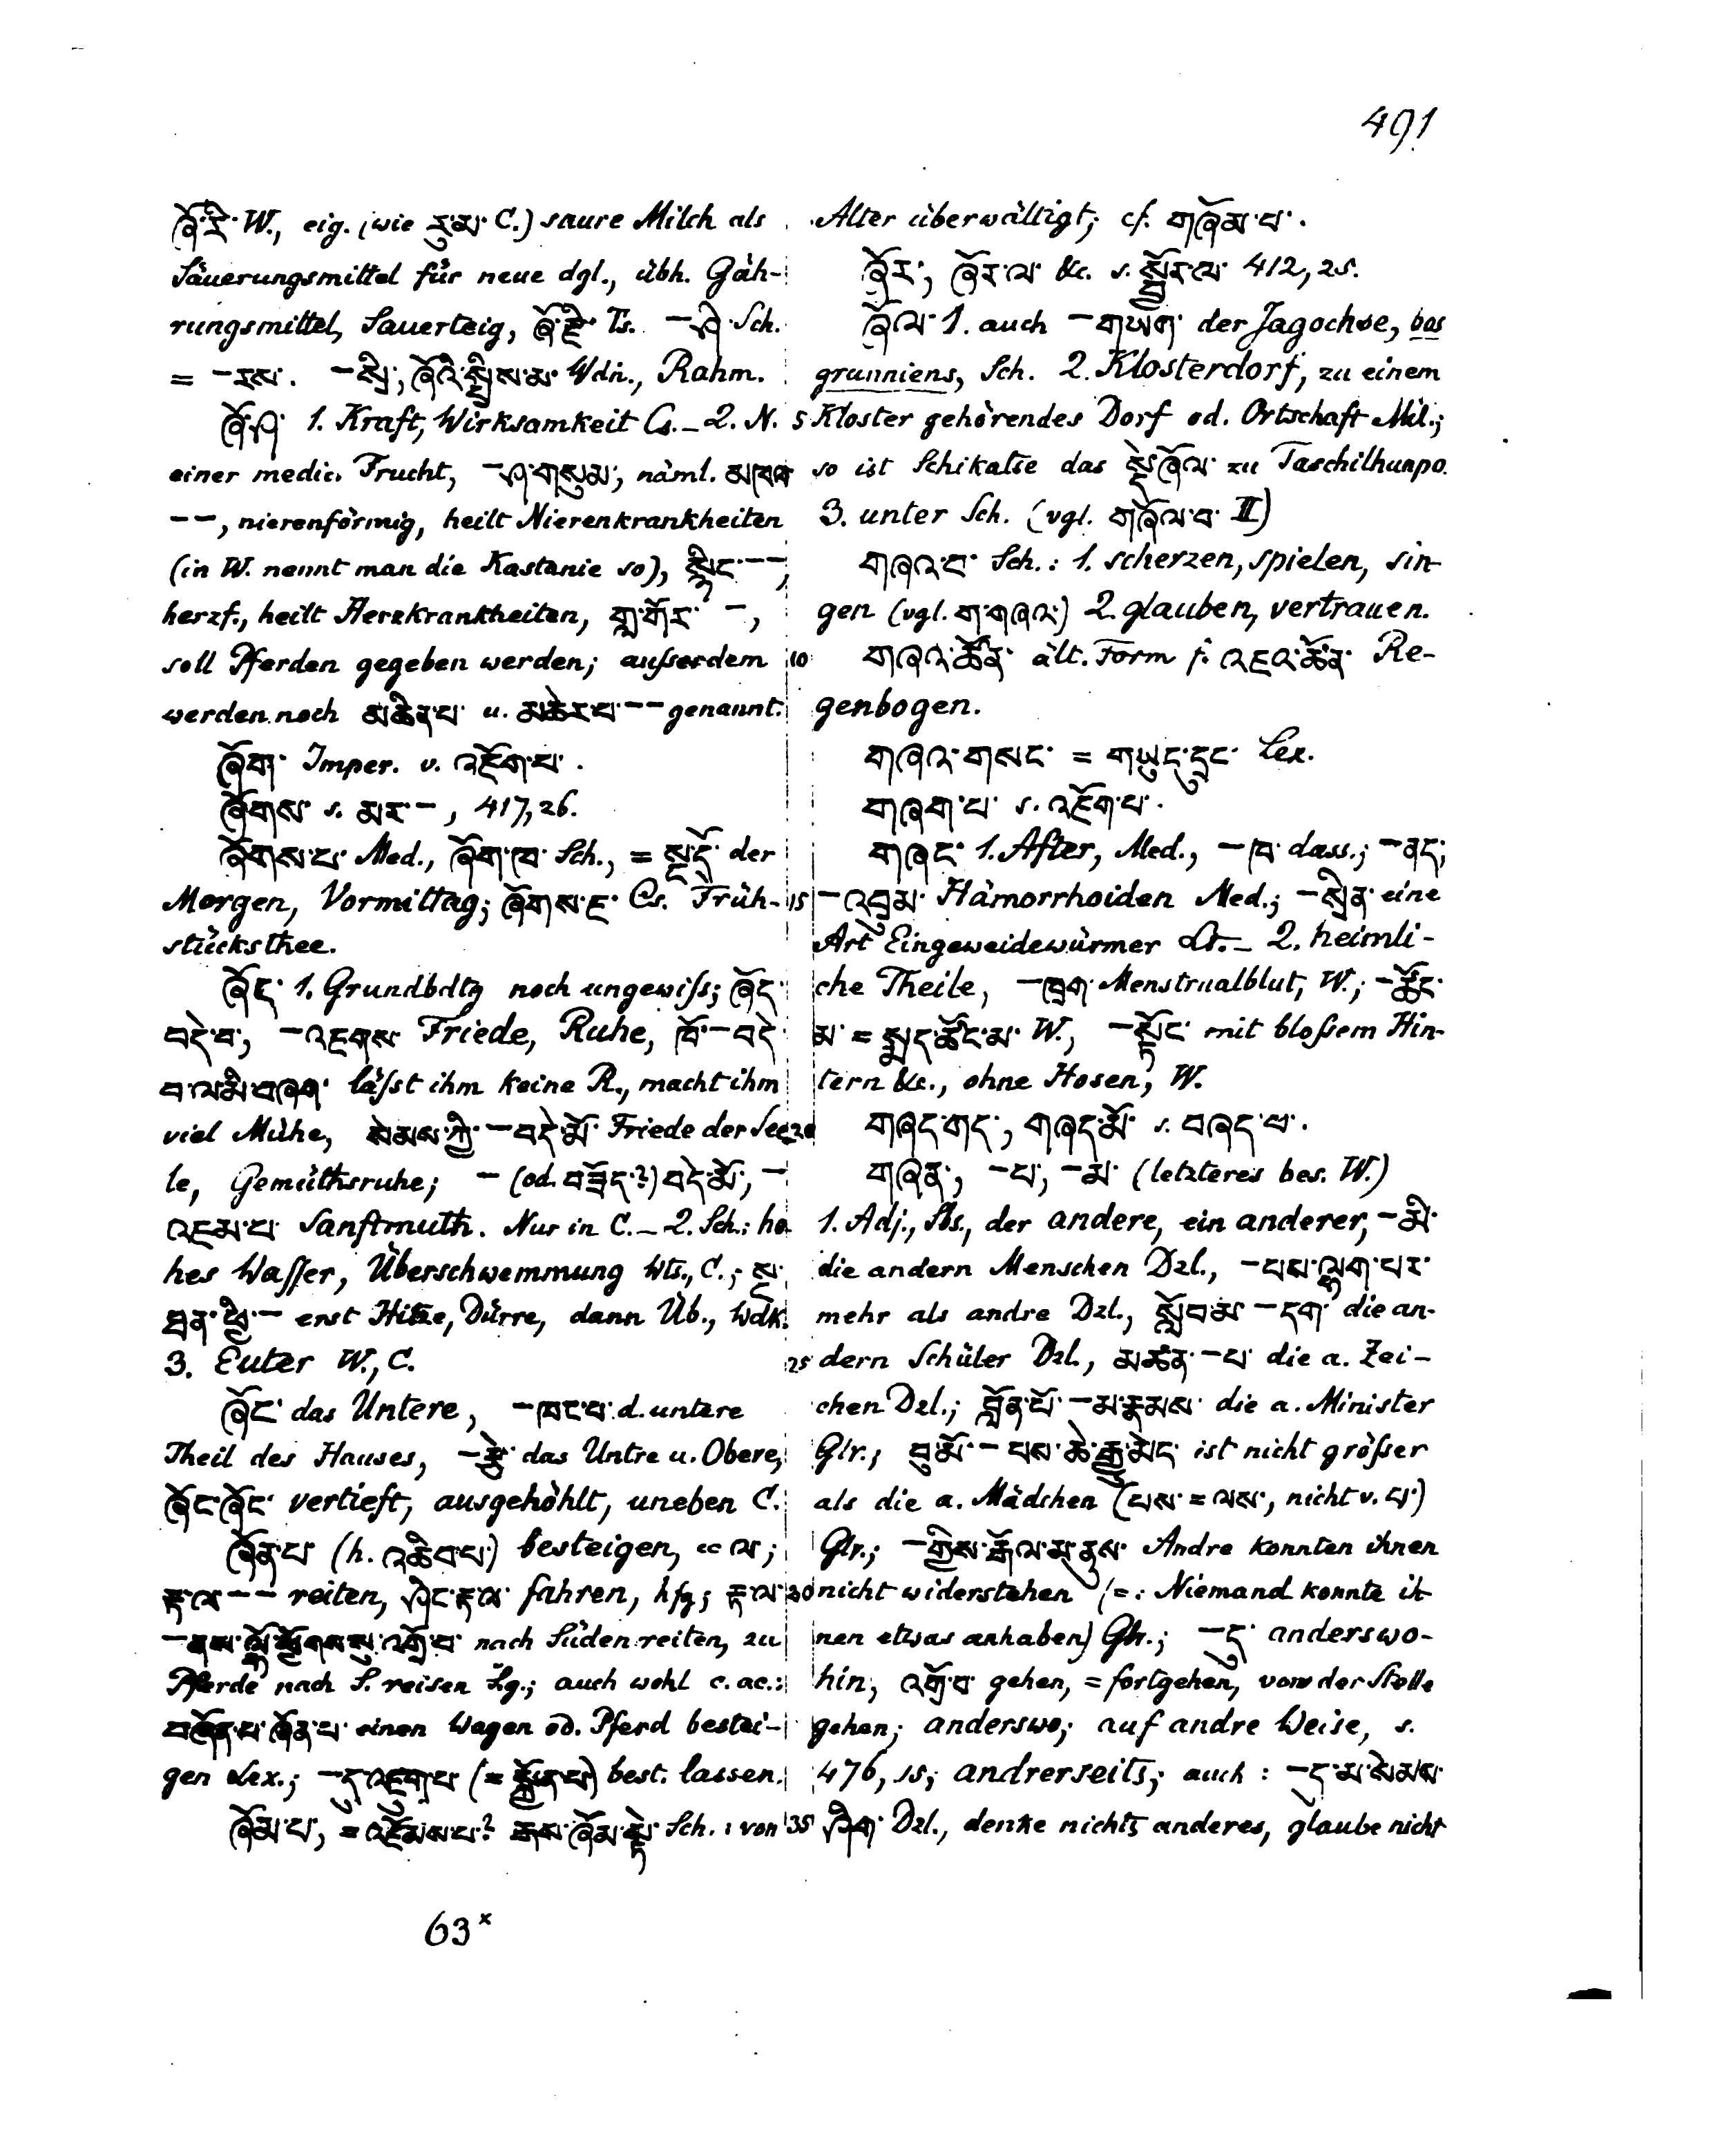 491
ཞོ་རི་ W., eig. (wie རུ་མ་ C.) saure Milch als
Säuerungsmittel für neue dgl., übh. Gäh-
rungsmittel, Sauerteig, ཞོ་རྫི་ Ts. — Sch.
= —རས་. —སྤྲི་, ཞོའི་སྤྲིས་མ་ Wdn., Rahm.
ཞོ་ཤ་ 1. Kraft, Wirksamkeit Cs. — 2. N.
einer medic. Frucht, —ཤ་གསུམ་, näml. མཁལ་
——, nierenförmig, heilt Nierenkrankheiten
(in W. nennt man die Kastanie so), སྙིང་——,
herzf., heilt Herzkrankheiten, གླ་གོར་ —,
soll Pferden gegeben werden; ausserdem
werden noch མཆིན་པ་ u. མཆེར་པ་—— genannt.
ཞོག་ Imper. v. འཇོག་པ་.
ཞོགས་ s. མར་—, 417,26.
ཞོགས་པ་ Med., ཞོག་ཁ་ Sch., = སྔ་དྲོ་ der
Morgen, Vormittag; ཞོགས་ཇ་ Cs. Früh-
stücksthee.
ཞོད་ 1. Grundbdtg noch ungewiss; ཞོད་
བདེ་བ་, —འཇགས་ Friede, Ruhe, ཁོ་—བདེ་
བ་ལ་མི་བཞག་ lässt ihm keine R., macht ihm
viel Mühe, སེམས་ཀྱི་—བདེ་མོ་ Friede der See-
le, Gemüthsruhe; — (od. བཟོད་?) བདེ་མོ་, —
འཇམ་པ་ Sanftmuth. Nur in C. — 2. Sch.: ho-
hes Wasser, Überschwemmung Wts., C.; སྔ་
ཐན་ཕྱི་— erst Hitze, Dürre, dann Üb., Wdk.
3. Euter W., C.
ཞོང་ das Untere, —ཁང་པ་ d. untere
Theil des Hauses, —རྩེ་ das Untre u. Obere,
ཞོང་ཞོང་ vertieft, ausgehöhlt, uneben C.
ཞོན་པ་ (h. འཆིབ་པ་) besteigen, cc ལ་;
རྟ་ལ་—— reiten, ཤིང་རྟ་ལ་ fahren, hfg; རྟ་ལ་
—ནས་ལྷོ་ཕྱོགས་སུ་འགྲོ་བ་ nach Süden reiten, zu
Pferde nach S. reisen Lg.; auch wohl c. ac.:
བཞོན་པ་ཞོན་པ་ einen Wagen od. Pferd bestei-
gen Lex.; —དུ་འཇུག་པ་ (= སྐྱོན་པ་) best. lassen.
ཞོམ་པ་, = འཇོམས་པ་? རྒས་ཞོམ་སྟེ་ Sch.: von
Alter überwältigt; cf. གཞོམ་པ་.
ཞོར་, ཞོར་ལ་ &c. s. སྦྱོར་ལ་ 412,25.
ཞོལ་ 1. auch —གཡག་ der Jagochse, bos
grunniens, Sch. 2. Klosterdorf, zu einem
5 Kloster gehörendes Dorf od. Ortschaft Mil.;
so ist Schikatse das སྡེ་ཞོལ་ zu Taschilhunpo.
3. unter Sch. (vgl. གཞོལ་བ་ II)
གཞའ་བ་ Sch.: 1. scherzen, spielen, sin-
gen (vgl. ག་གཞའ་) 2. glauben, vertrauen.
10 གཞའ་ཚོན་ ält. Form f. འཇའ་ཚོན་ Re-
genbogen.
གཞའ་གསང་ = གཡུང་དྲུང་ Lex.
གཞག་པ་ s. འཇོག་པ་.
གཞང་ 1. After, Med., —ཁ་ dass.; —ནད་,
15 —འབྲུམ་ Hämorrhoiden Med.; —སྲིན་ eine
Art Eingeweidewürmer Lt. — 2. heimli-
che Theile, —ཁྲག་ Menstrualblut, W.; —ཚོང་
མ་ = སྨད་ཚོང་མ་ W., —སྟོང་ mit blossem Hin-
tern &c., ohne Hosen, W.
20 གཞད་གད་, གཞད་མོ་ s. བཞད་པ་.
གཞན་, —པ་, —མ་ (letzteres bes. W.)
1. Adj., Sbs., der andere, ein anderer, —མི་
die andern Menschen Dzl., —པས་ལྷག་པར་
mehr als andre Dzl., སློབ་མ་—དག་ die an-
25 dern Schüler Dzl., མཚན་—པ་ die a. Zei-
chen Dzl.; བློན་པོ་—མ་རྣམས་ die a. Minister
Glr.; བུ་མོ་—པས་ཆེ་རྒྱུ་མེད་ ist nicht grösser
als die a. Mädchen (པས་ = ལས་, nicht v. པ་)
Glr.; —གྱིས་རྒོལ་མ་ནུས་ Andre konnten ihnen
30 nicht widerstehen (=: Niemand konnte ih-
nen etwas anhaben) Glr.; —དུ་ anderswo-
hin, འགྲོ་བ་ gehen, = fortgehen, von der Stelle
gehen; anderswo; auf andre Weise, s.
476,15; andrerseits; auch: —དུ་མ་སེམས་
35 ཤིག་ Dzl., denke nichts anderes, glaube nicht
63ˣ